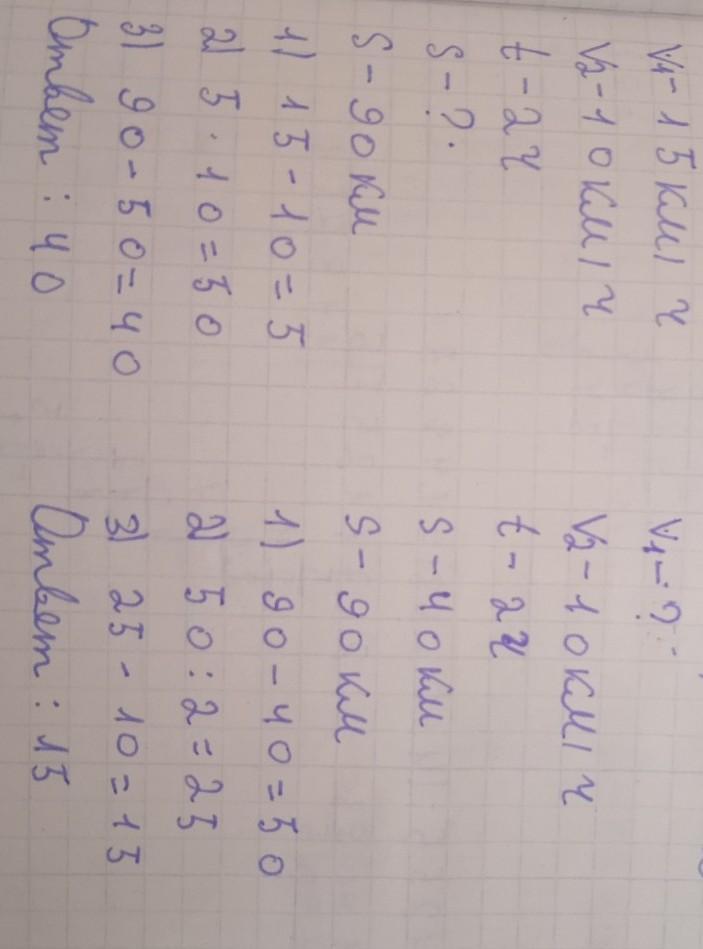 V1-15км/ч
V2-10км/ч
t-2ч
S-?.
S-90км
1) 15-10=5
2) 5·10=50
3) 90-50=40
Ответ: 40
V1-?
V2-10км/ч
t-2ч
S-40км
S-90км
1) 90-40=50
2) 50:2=25
3) 25-10=15
Ответ: 15